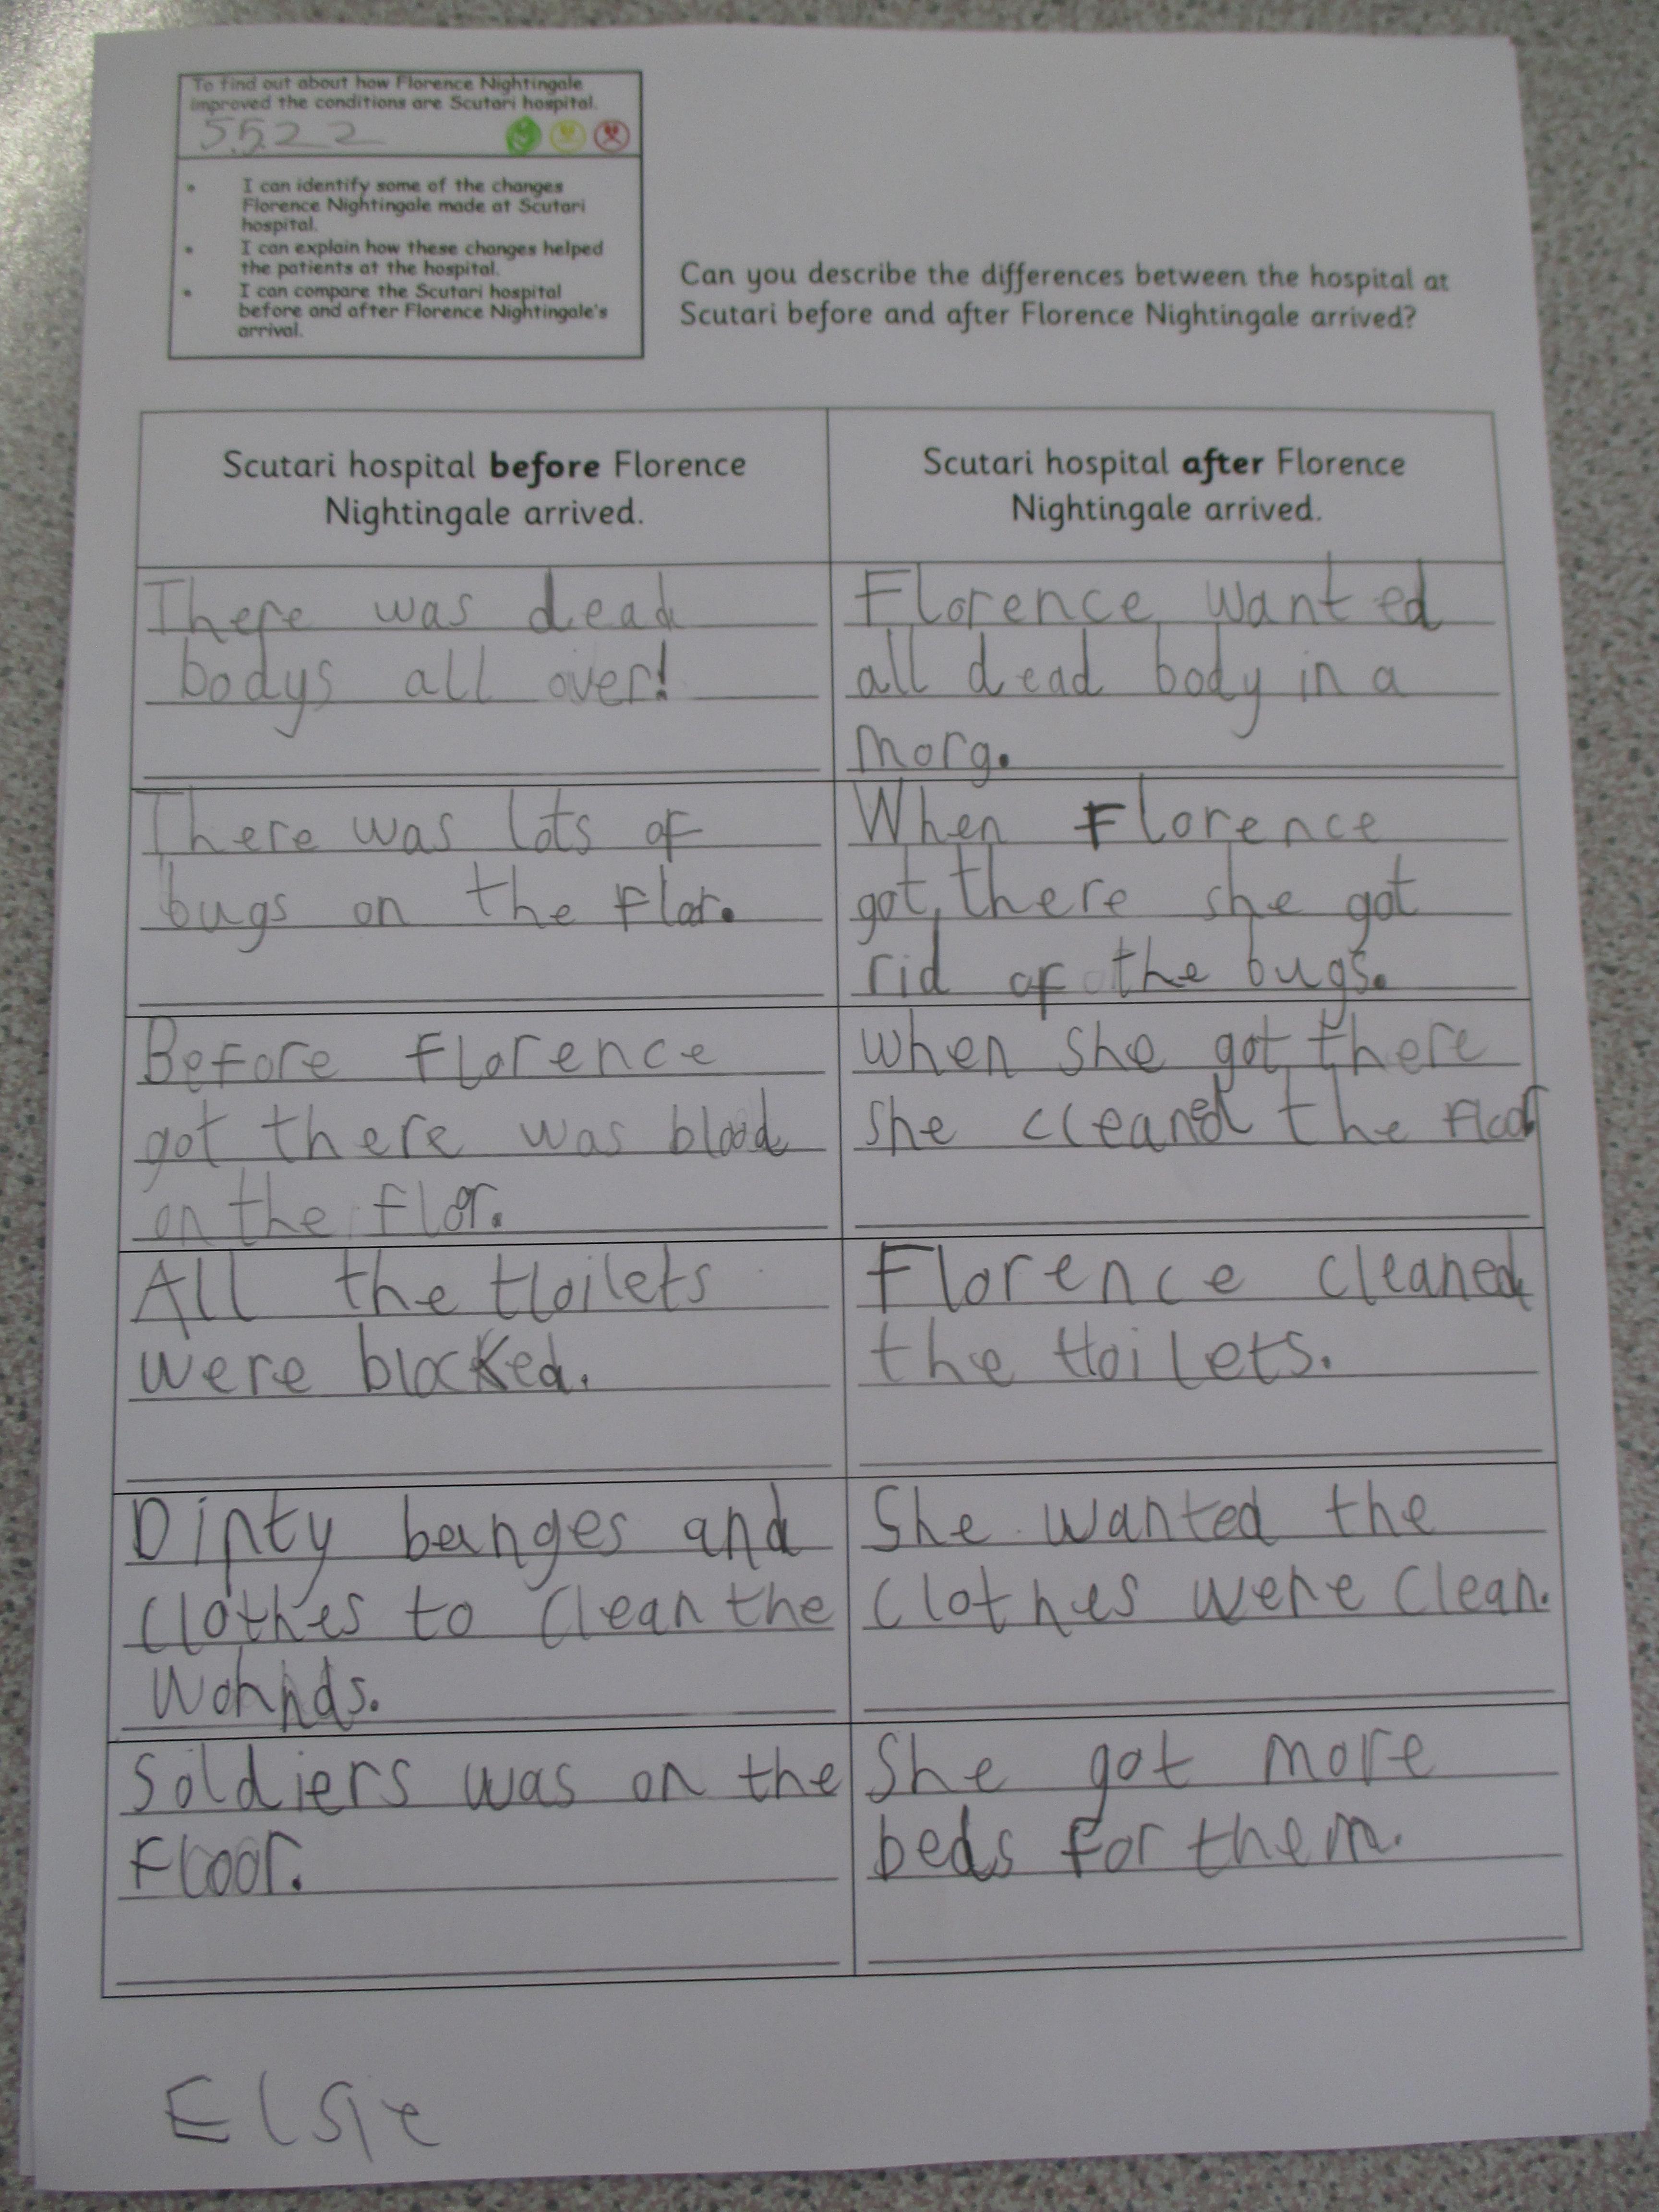 To find out about how Florence Nightingale
improved the conditions are Scutari hospital.
5.5.22
• I can identify some of the changes
Florence Nightingale made at Scutari
hospital.
• I can explain how these changes helped
the patients at the hospital.
• I can compare the Scutari hospital
before and after Florence Nightingale's
arrival.
Can you describe the differences between the hospital at
Scutari before and after Florence Nightingale arrived?
Scutari hospital before Florence
Nightingale arrived.
Scutari hospital after Florence
Nightingale arrived.
There was dead
bodys all over!
Florence wanted
all dead body in a
morg.
There was lots of
bugs on the flor.
When Florence
got there she got
rid of the bugs.
Before Florence
got there was blood
on the flor.
when she got there
she cleaned the floor
All the tloilets
were blocked.
Florence cleaned
the tloilets.
Dirty banges and
clothes to clean the
wonnds.
She wanted the
clothes were clean.
Soldiers was on the
floor.
She got more
beds for them.
Elsie